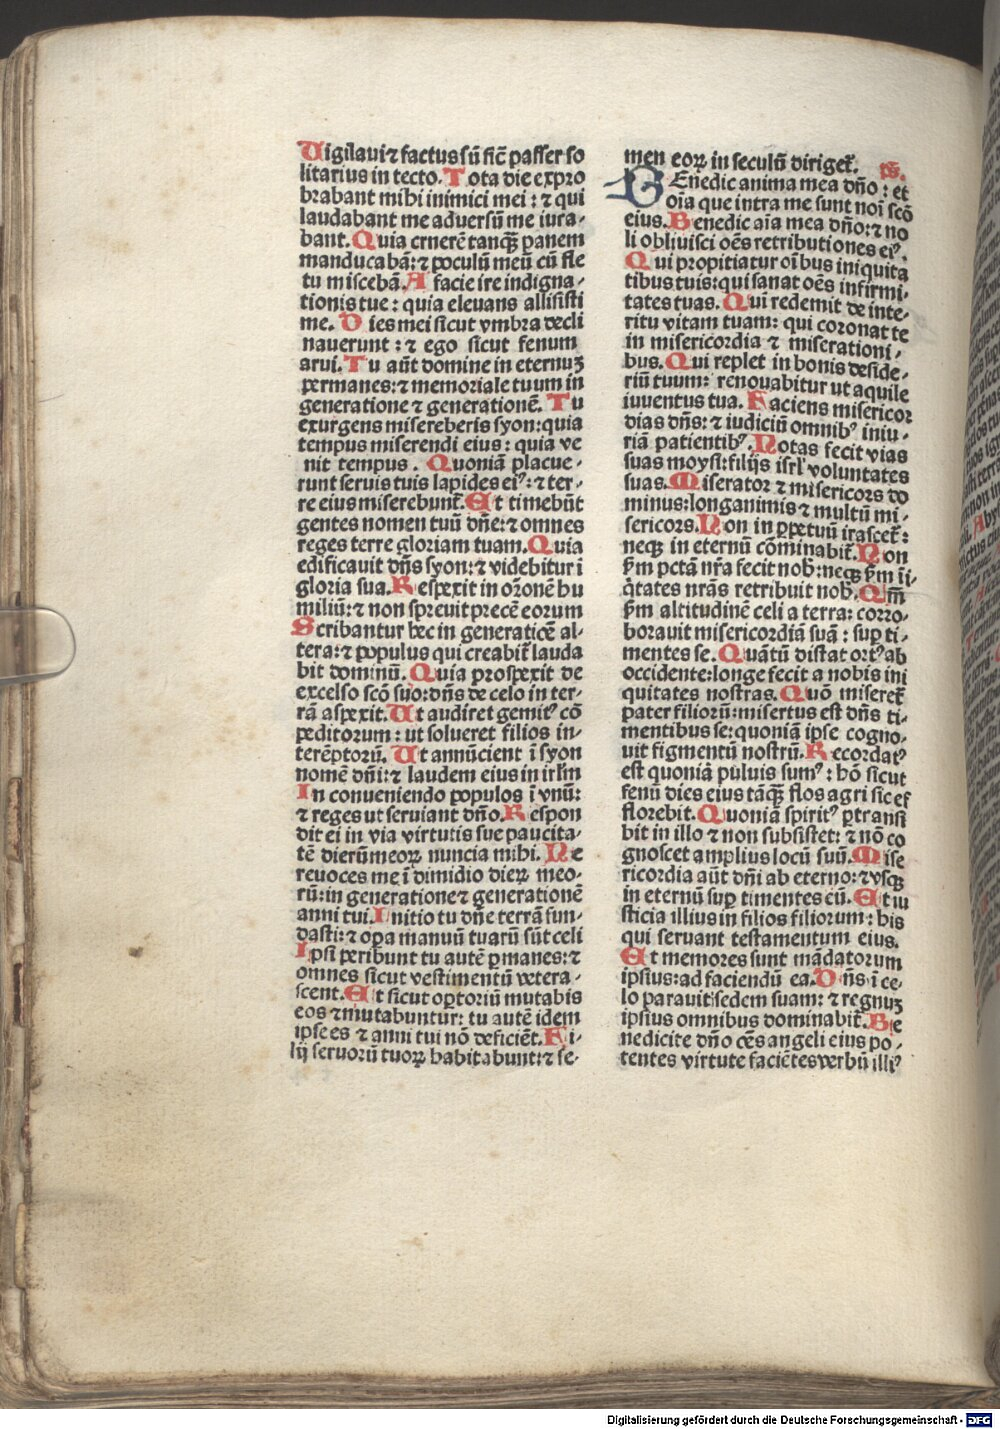 Uigilaui ⁊ factus sũ sic̃ passer so
litarius in tecto. Tota die expro
brabant mihi inimici mei : ⁊ qui
laudabant me aduersũ me iura-
bant. Quia crnerẽ tanqꝫ panem
manducabã: ⁊ poculũ meũ cũ fle
tu miscebã. A facie ire indigna-
tionis tue : quia eleuans allisisti
me. Dies mei sicut vmbra decli
nauerunt : ⁊ ego sicut fenum
arui. Tu aũt domine in eternuꝫ
permanes: ⁊ memoriale tuum in
generatione ⁊ generationẽ. Tu
exurgens misereberis syon: quia
tempus miserendi eius : quia ve
nit tempus . Quoniã placue-
runt seruis tuis lapides eiꝰ: ⁊ ter-
re eius miserebunt̃. Et timebũt
gentes nomen tuũ dñe: ⁊ omnes
reges terre gloriam tuam. Quia
edificauit dñs syon: ⁊ videbitur ĩ
gloria sua. Respexit in or̃onẽ hu
miliũ: ⁊ non spreuit precẽ eorum
Scribantur hec in generatiõe al-
tera: ⁊ populus qui creabit̃ lauda
bit dominũ. Quia prospexit de
excelso scõ suo: dñs de celo in ter-
rã aspexit. Ut audiret gemitꝰ cõ
peditorum : ut solueret filios in-
terẽptorũ. Ut annũcient ĩ syon
nomẽ dñi: ⁊ laudem eius in irl̃m
In conueniendo populos ĩ vnũ:
⁊ reges ut seruiant dño. Respon
dit ei in via virtutis sue paucita-
tẽ dierũ meoꝝ nuncia mihi. Ne
reuoces me ĩ dimidio dieꝝ meo-
rũ: in generatione ⁊ generationẽ
anni tui. Initio tu dñe terrã fun-
dasti: ⁊ oꝑa manuũ tuarũ sũt celi
Ipsi peribunt tu autẽ ꝑmanes: ⁊
omnes sicut vestimentũ vetera-
scent. Et sicut optoriũ mutabis
eos ⁊ mutabuntur: tu autẽ idem
ipse es ⁊ anni tui nõ deficiẽt. Fi-
lij seruorũ tuoꝝ habitabunt: ⁊ se-
men eoꝝ in seculũ diriget̃. ps̃.
BEnedic anima mea dño : et
oĩa que intra me sunt noĩ scõ
eius. Benedic aĩa mea dño: ⁊ no
li obliuisci oẽs retributiones eiꝰ.
Qui propitiatur oĩbus iniquita
tibus tuis: qui sanat oẽs infirmi-
tates tuas. Qui redemit de inte-
ritu vitam tuam: qui coronat te
in misericordia ⁊ miserationi-
bus. Qui replet in bonis deside-
riũ tuum: renouabitur ut aquile
iuuentus tua. Faciens misericor
dias dñs: ⁊ iudiciũ omnibꝰ iniu-
riã patientibꝰ. Notas fecit vias
suas moysi: filijs isrl̃ voluntates
suas. Miserator ⁊ misericors do
minus: longanimis ⁊ multũ mi-
sericors. Non in ꝑpetuũ irascet̃:
neqꝫ in eternũ cõminabit̃. Non
ẜm pctãnr̃a fecit nob̃: neqꝫ ẜm ĩi-
q̃tates nrãs retribuit nob̃. Qm̃
ẜm altitudinẽ celi a terra: corro-
borauit misericordiã suã : suꝑ ti-
mentes se. Quãtũ distat ortꝰ ab
occidente: longe fecit a nobis ini
quitates nostras. Quõ miseret̃
pater filiorũ: misertus est dñs ti-
mentibus se: quoniã ipse cogno-
uit figmentũ nostrũ. Recordatꝰ
est quoniã puluis sumꝰ : hõ sicut
fenũ dies eius tãqꝫ flos agri sic ef
florebit. Quoniã spiritꝰ ꝑtransi
bit in illo ⁊ non subsistet: ⁊ nõ co
gnoscet amplius locũ suũ. Mise
ricordia aũt dñi ab eterno: ⁊ vsqꝫ
in eternũ suꝑ timentes eũ. Et iu
sticia illius in filios filiorum: his
qui seruant testamentum eius.
Et memores sunt mãdatorum
ipsius: ad faciendũ ea. Dñs ĩ ce-
lo parauit sedem suam: ⁊ regnuꝫ
ipsius omnibus dominabit̃. Be
nedicite dño oẽs angeli eius po-
tentes virtute faciẽtes verbũ illiꝰ
Digitalisierung gefördert durch die Deutsche Forschungsgemeinschaft - DFG